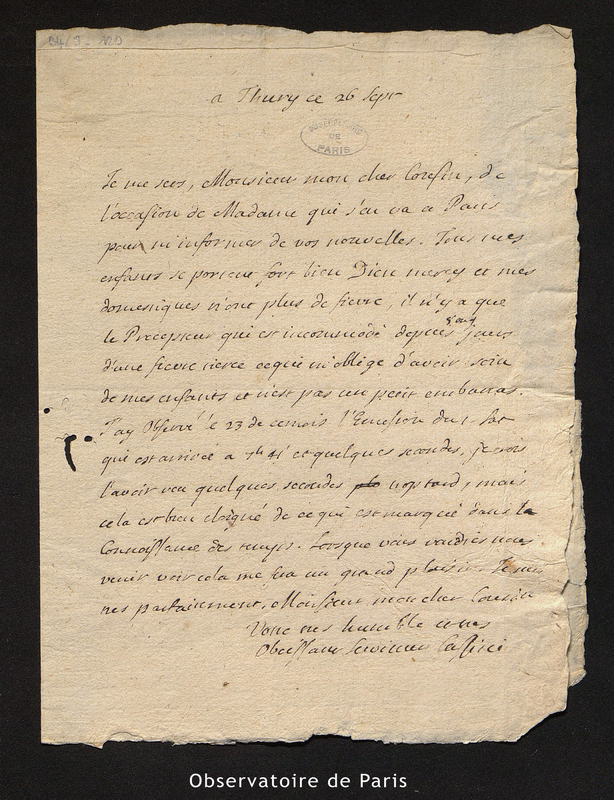 B4/9-120
a Thury ce 26 Sept
OBSERVATOIRE
DE
PARIS
Je me sers, Monsieur mon cher Cousin, de
l'occasion de Madame qui s'en va a Paris
pour m'informer de vos nouvelles. Tous mes
enfants se portent fort bien Dieu mercy et mes
domestiques n'ont plus de fievre, il n'y a que
le Precepteur qui est incommodé depuis jours
d'une fievre tierce ce qui m'oblige d'avoir soin
de mes enfants et n'est pas un petit embarras.
J'ay Observé le 23 de ce mois l'Emersion du 1. Sat
qui est arrivée a 7h 41' et quelques secondes, je crois
l'avoir veu quelques secondes trop tard, mais
cela est bien eloigné de ce qui est marqué dans la
Connoissance des temps. Lorsque vous voudres nous
venir voir cela me fera un grand plaisir. Je suis
tres parfaitement, Monsieur mon cher Cousin
Votre tres humble et tres
Obeissant serviteur Cassini
Observatoire de Paris